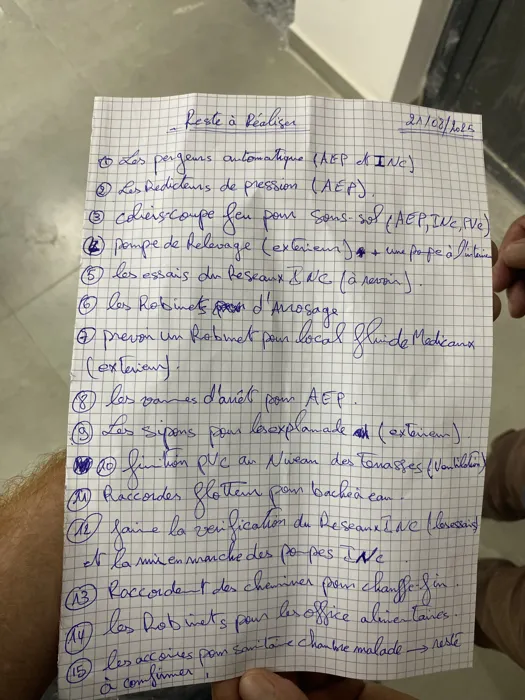 Reste à Réaliser 21/02/2025
① Les pergeurs automatique (AEP et INC)
② Les Redicteurs de pression (AEP).
③ coliers coupe feu pour sous-sol (AEP, INC, PVC)
④ pompe de Relevage (exterieur) + une pompe à l'interieur
⑤ les essais du Reseaux INC (à revoir).
⑥ les Robinets d'Arrosage
⑦ prevoir un Robinet pour local fluide Medicaux
(exterieur).
⑧ les vannes d'arrêt pour AEP.
⑨ Les sipons pour les explanade (exterieur).
⑩ finition PVC au Niveau des Terrasses (Ventilation)
⑪ Raccordes flotteur pour bache à eau.
⑫ faire la verification du Reseaux INC (les essais)
et la mise en marche des pompes INC.
⑬ Raccordent des cheminer pour chauffe-
⑭ les Robinets pour les office alimentaires.
⑮ les accoires pour sanitaire chambre malade → reste
à confirmer.